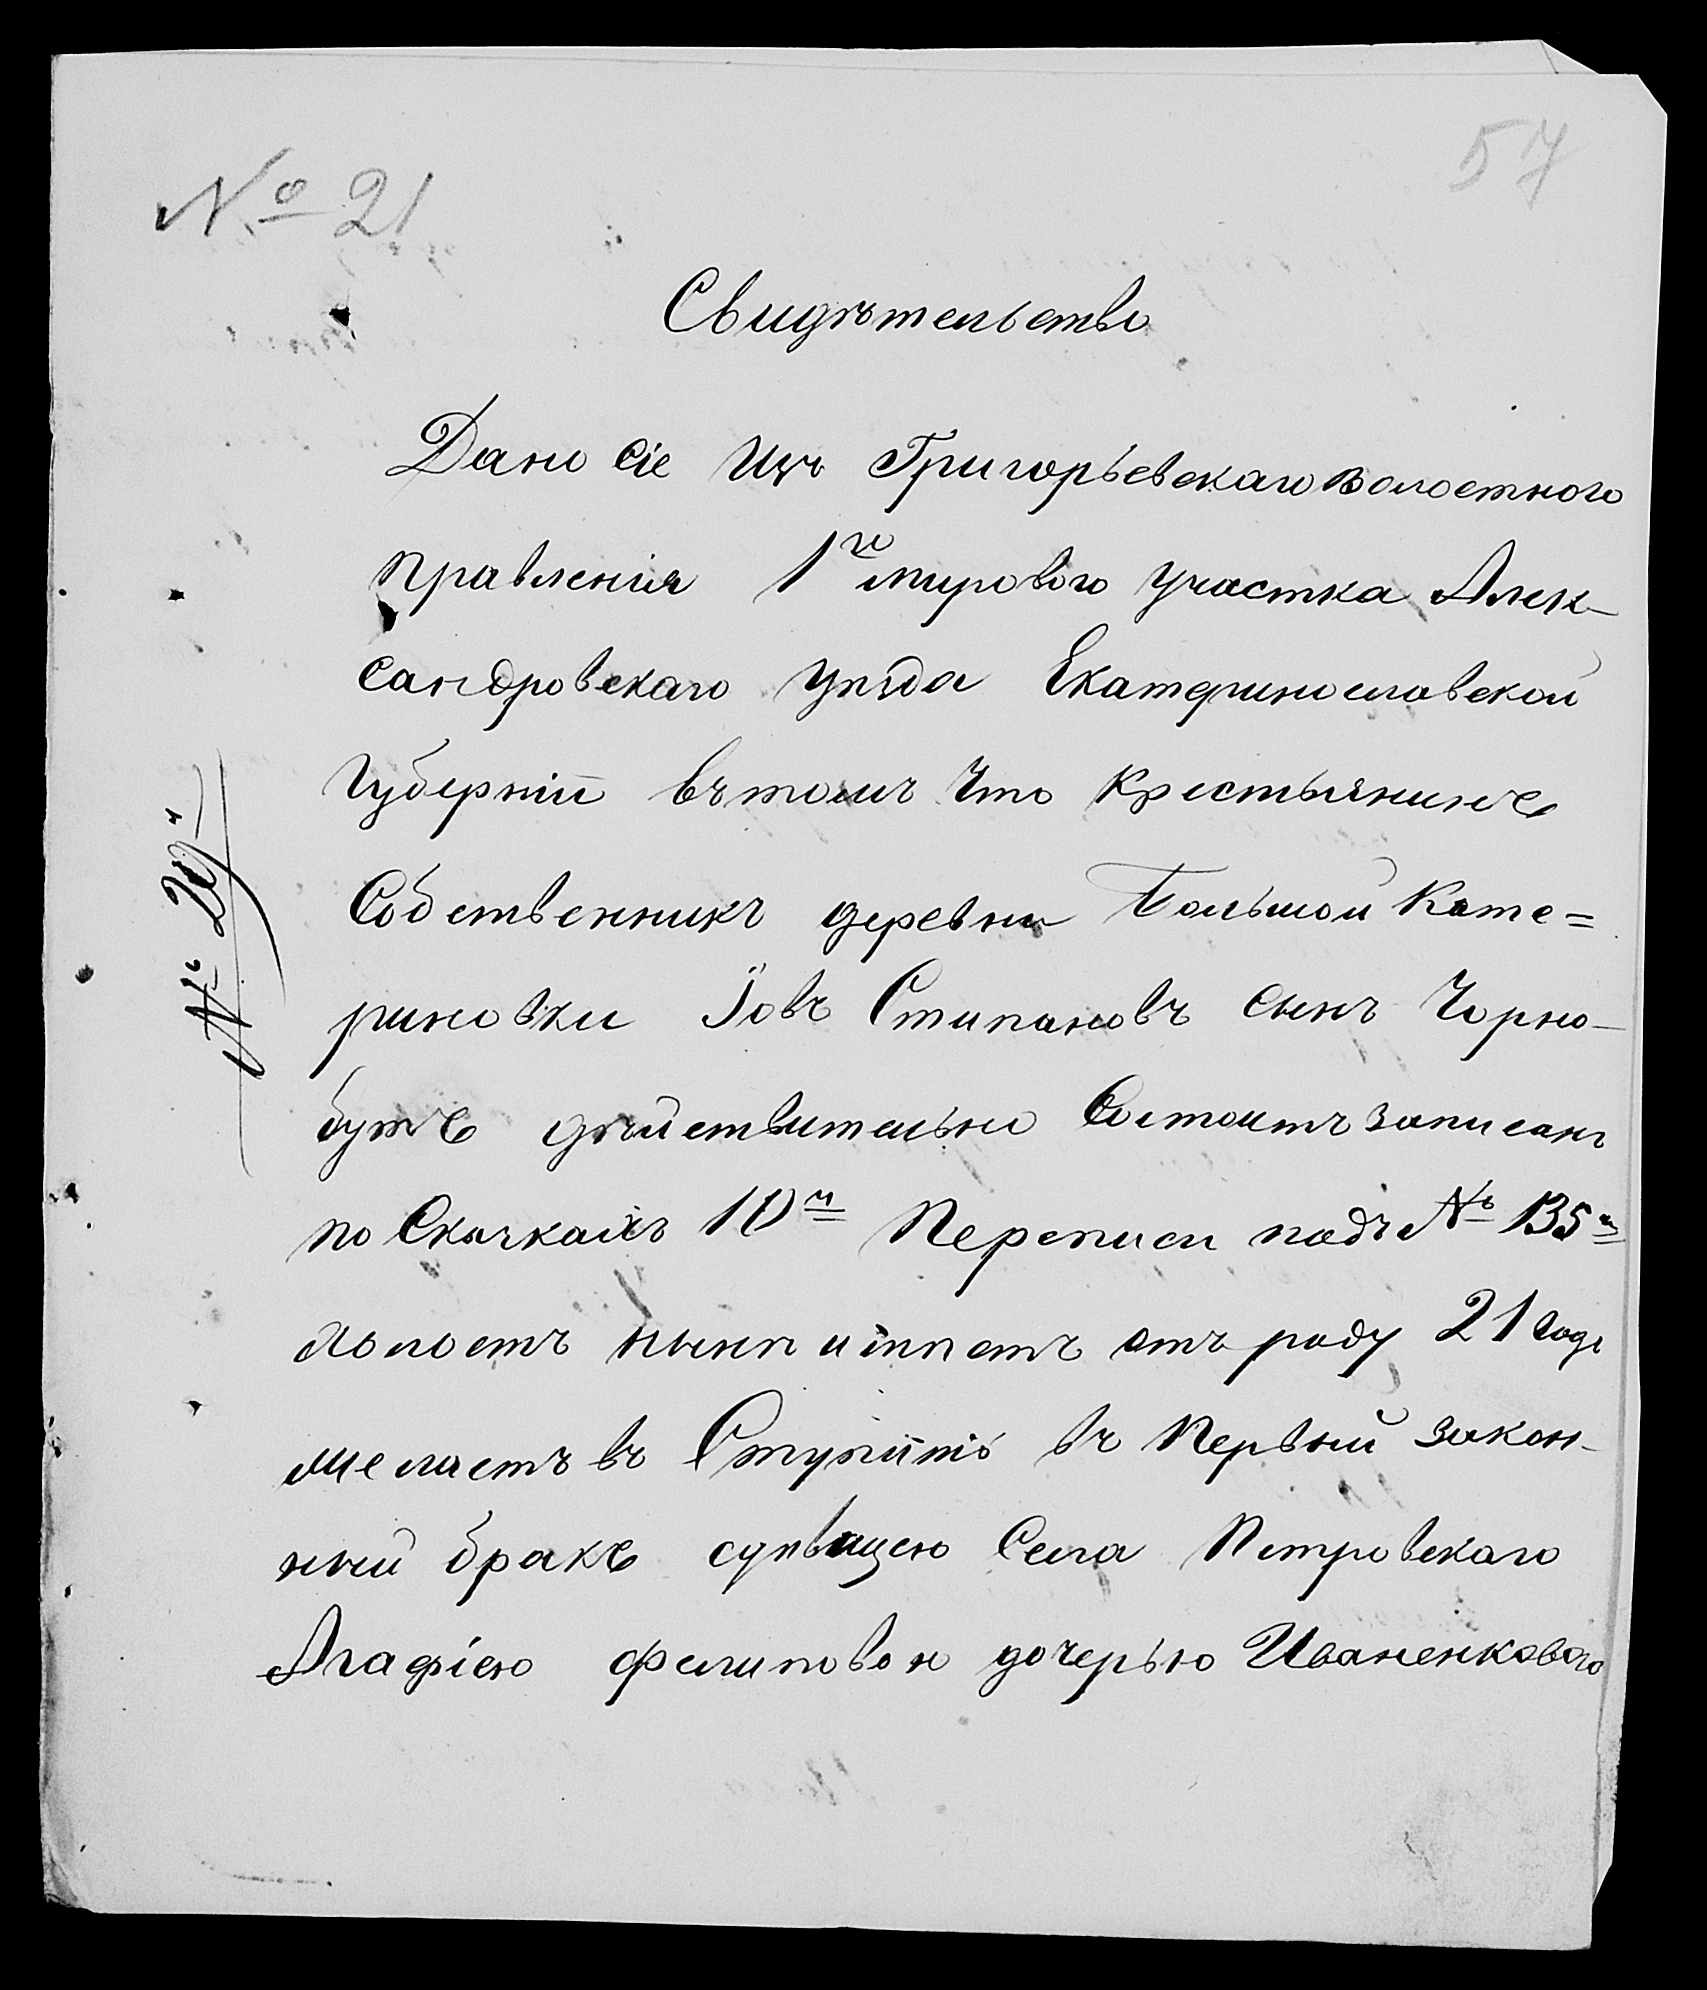 57
№ 21
Свидѣтельство
Дано Сіе Изъ Григорьевскаго волостного
правленія 1го мирового Участка Алек-
сандровскаго Уѣзда Екатеринославской
Губерніи въ томъ Что Крестьянинъ
Собственникъ деревни Большой Кате=
риновки Іовъ Стипановъ сынъ Чорно-
бутъ дѣйствительно Состоитъ записанъ
по Скачкамъ 10й Переписи подъ № 135м
холостъ нынѣ имѣетъ отъ роду 21 годъ
желаетъ въ Ступить въ Первый закон-
ный бракъ сдѣвицею Села Петровскаго
Агафіею Филиповою дочерью Иваненкового
№ 20й